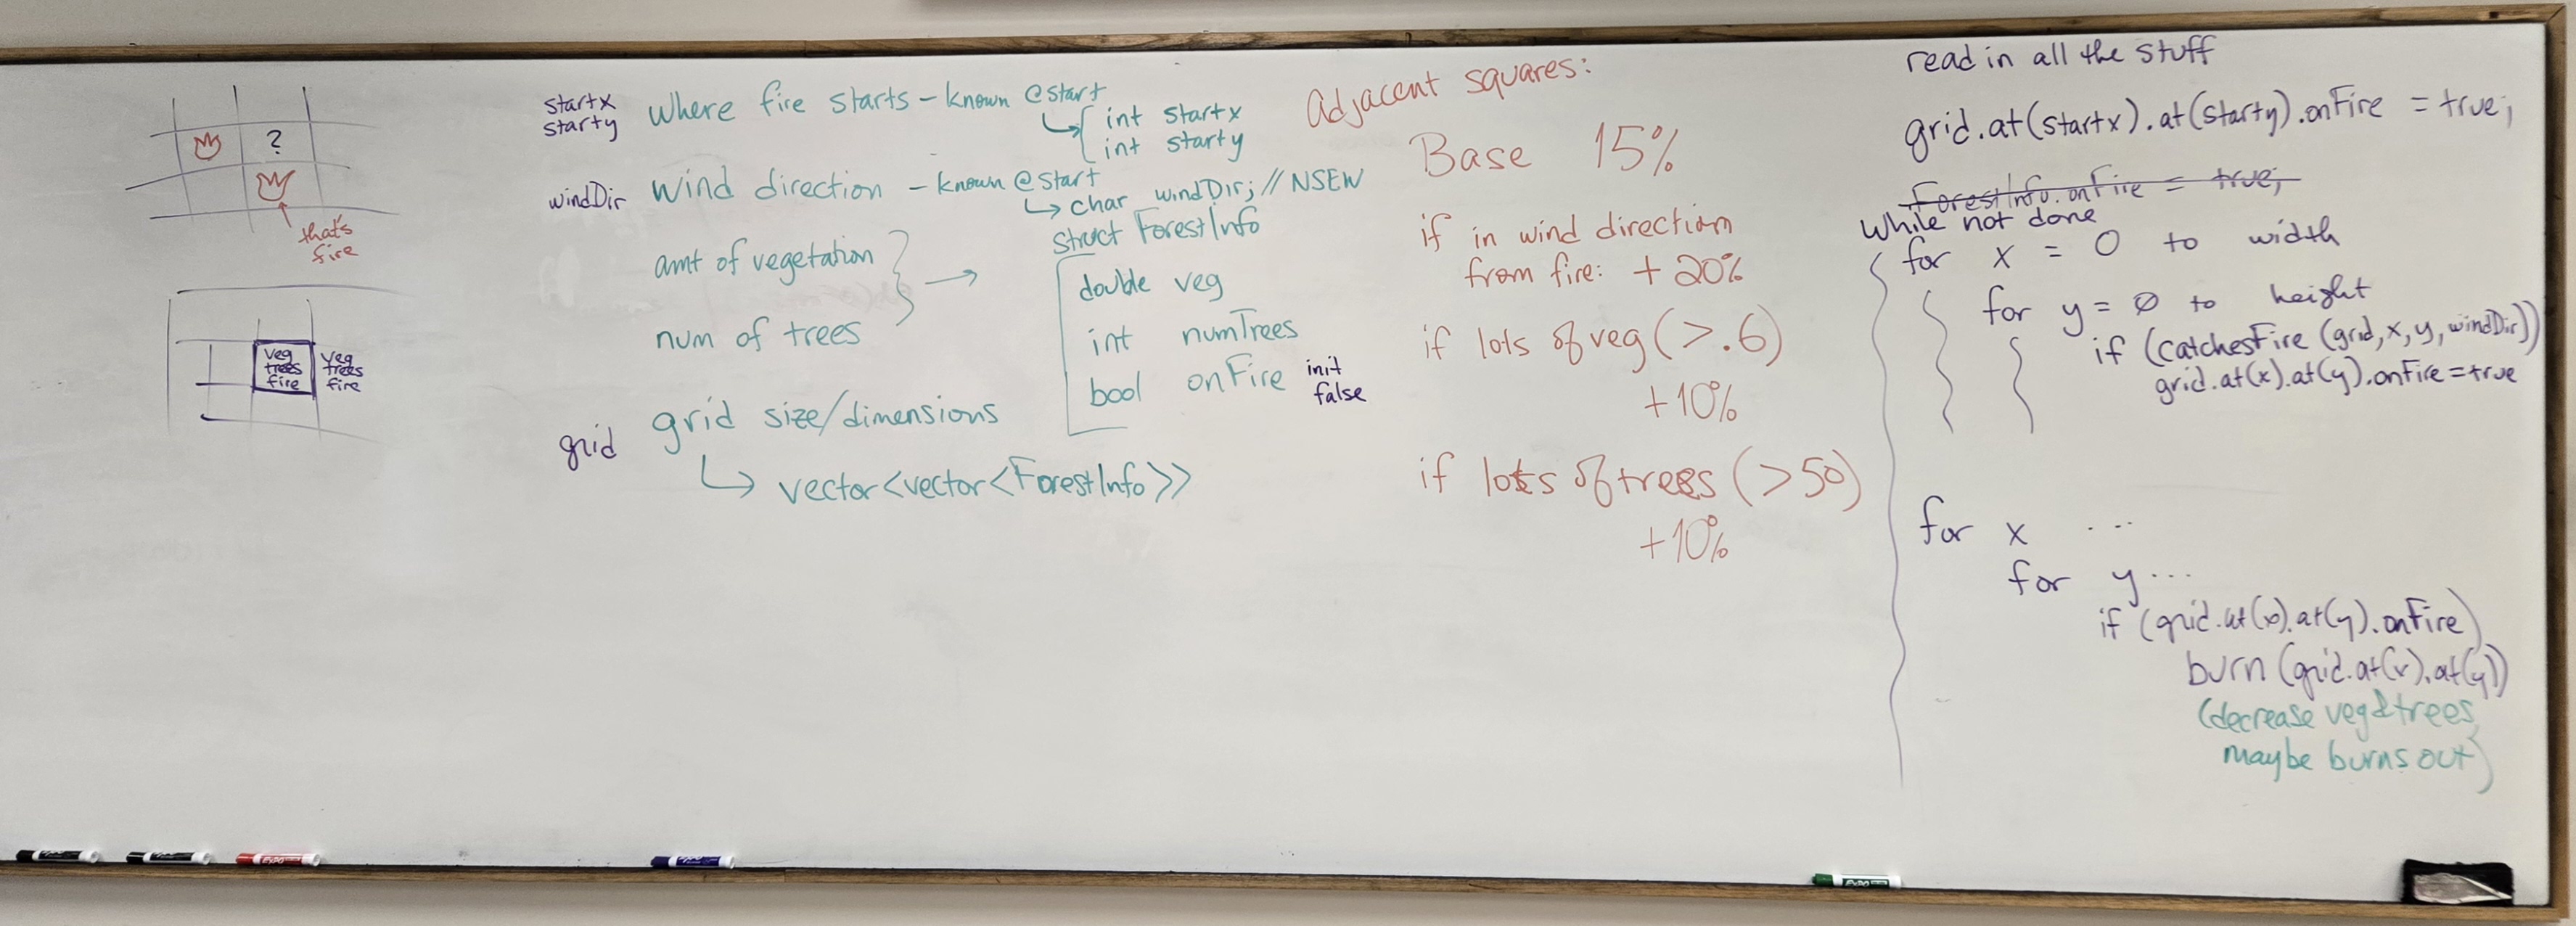 ?
that's
fire
veg
trees
fire
veg
trees
fire
startx
starty
where fire starts - known @start
int startx
int starty
windDir
wind direction - known @start
char windDir; // NSEW
amt of vegetation
num of trees
struct ForestInfo
double veg
int numTrees
bool onFire init
false
grid
grid size/dimensions
vector<vector<ForestInfo>>
Adjacent squares:
Base 15%
if in wind direction
from fire: +20%
if lots of veg (>.6)
+10%
if lots of trees (>50)
+10%
read in all the stuff
grid.at(startx).at(starty).onFire = true;
ForestInfo.onFire = true;
While not done
for x = 0 to width
for y = 0 to height
if (catchesFire (grid, x, y, windDir))
grid.at(x).at(y).onFire = true
for x ...
for y ...
if (grid.at(x).at(y).onFire)
burn (grid.at(x).at(y))
(decrease veg & trees,
maybe burns out)
EXPO
EXPO